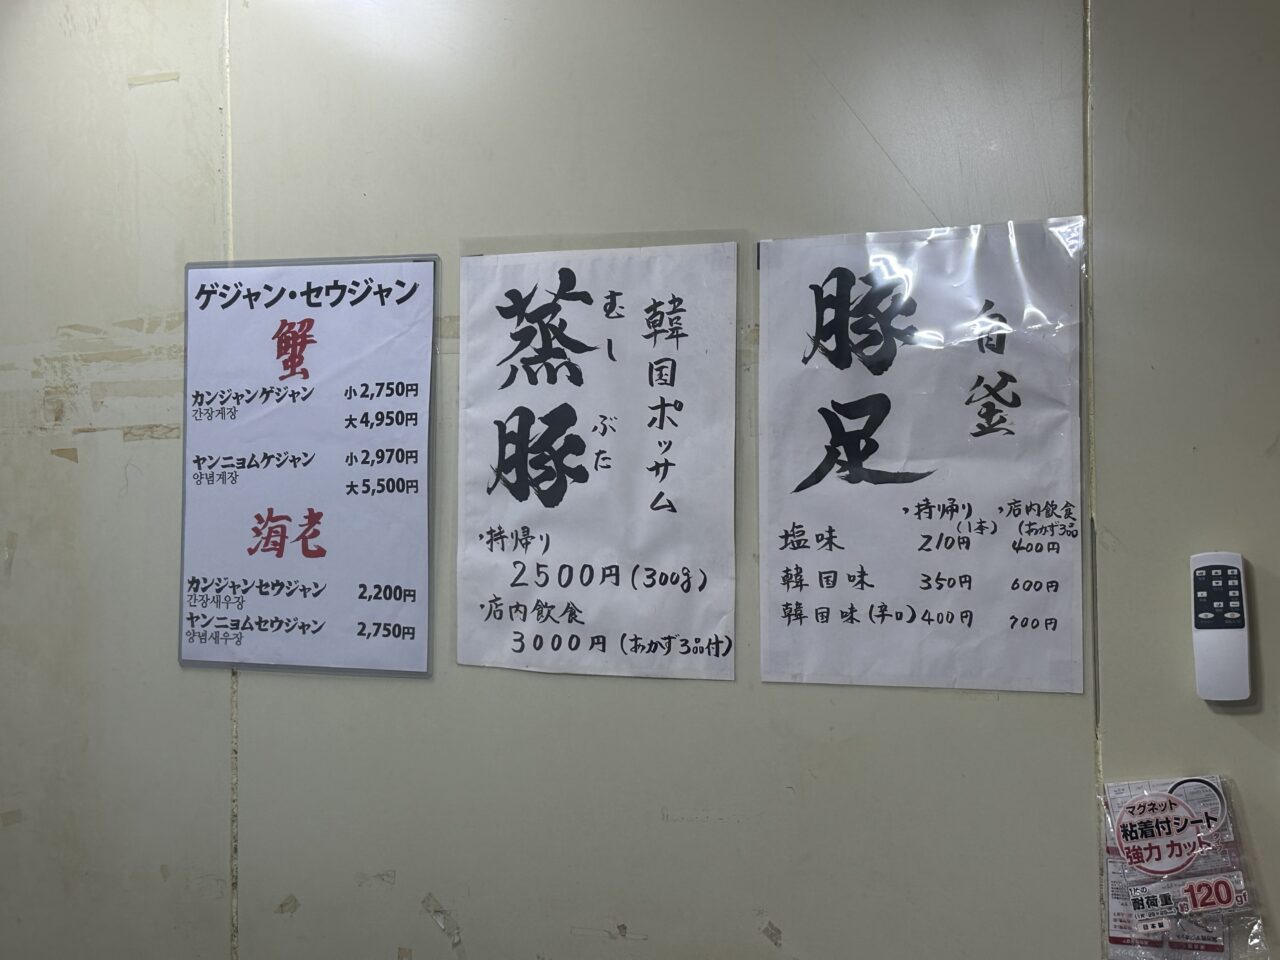 ゲジャン・セウジャン
蟹
カンジャンゲジャン 小2,750円
간장게장
大4,950円
ヤンニョムゲジャン 小2,970円
양념게장
大5,500円
海老
カンジャンセウジャン 2,200円
간장새우장
ヤンニョムセウジャン 2,750円
양념새우장
韓国ポッサム
蒸豚
むしぶた
・持帰り
2500円(300g)
・店内飲食
3000円(おかず3品付)
自釜
豚足
・持帰り(1本) ・店内飲食(おかず3品
塩味 210円 400円
韓国味 350円 600円
韓国味(辛口) 400円 700円
マグネット
粘着付シート
強力 カット
耐荷重 約120gf
日本製